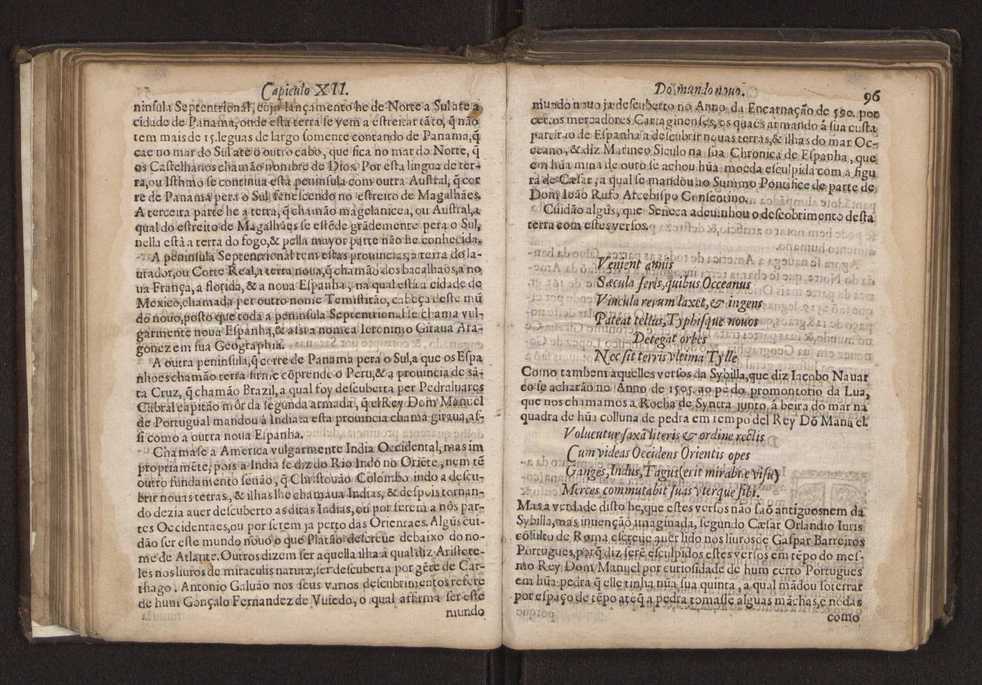 Capitulo XII.
ninsula Septentrional, cujo lançamento he de Norte a Sul ate a
cidade de Panama, onde esta terra se vem a estreitar tãto, q̃ não
tem mais de 15. legoas de largo somente contando de Panama, q̃
cae no mar do Sul ate o outro cabo, que fica no mar do Norte, q̃
os Castelhanos chamão nombre de Dios. Por esta lingua de ter-
ra, ou Isthmo se continua esta peninsula com outra Austral, q̃ cor
re de Panama pera o Sul fenescendo no estreito de Magalhães.
A terceira parte he a terra, q̃ chamão magelanicea, ou Austral, a
qual do estreito de Magalhães se estẽde grãdemente pera o Sul,
nella està a terra do fogo, & pella mayor parte não he conhecida.
A peninsula Septentrional tem estas provincias, a terra do la-
urador, ou Corte Real, a terra noua, q̃ chamão dos bacalhaos, a no
ua França, a florida, & a noua Espanha, na qual està a cidade de
Mexico, chamada per outro nome Temistitão, cabeça deste mũ
do nouo, posto que toda a peninsula Septentrional se chama vul-
garmente noua Espanha, & assi a nomea Ieronimo Giraua Ara-
gonez em sua Geographia.
A outra peninsula, q̃ corre de Panama pera o Sul, a que os Espa
nhoes chamão terra firme cõprende o Peru, & a prouincia de sã-
ta Cruz, q̃ chamão Brazil, a qual foy descuberta per Pedraluares
Cabral capitão mòr da segunda armada, q̃ el Rey Dom Manuel
de Portugual mandou à India: ta esta prouincia chama giraua, as-
si como a outra noua Espanha.
Chamase a America vulgarmente India Occidental, mas im
propriamẽte, pois a India se diz do Rio Indo no Oriẽte, nem tẽ
outro fundamento senão, q̃ Christouão Colombo indo a descu-
brir nouas terras, & ilhas lhe chamaua Indias, & despois tornan-
do dezia auer descuberto as ditas Indias, ou por serem a nòs par-
tes Occidentaes, ou por serem ja perto das Orientaes. Algũs cui-
dão ser este mundo nouo o que Platão descreue debaixo do no-
me de Atlante. Outros dizem ser aquella ilha à qual diz Aristote-
les nos liuros de miraculis naturæ, ser descuberta por gẽte de Car-
thago. Antonio Galuão nos seus varios descubrimentos refere
de hum Gonçalo Fernandez de Uuiedo, o qual affirma ser este
mundo
Do mundo nouo. 96
mundo nouo ja descuberto no Anno da Encarnação de 590. por
certos mercadores Cartaginenses, os quaes armando à sua custa
partirão de Espanha a descubrir nouas terras, & ilhas do mar Oc-
ceano, & diz Marineo Siculo na sua Chronica de Espanha, que
em hũa mina de ouro se achou hũa moeda esculpida com a figu
ra de Cæsar, a qual se mandou ao Summo Pontifice de parte de
Dom Ioão Rufo Arcebispo Consentino.
Cuidão algũs, que Seneca adeuinhou o descobrimento desta
terra com estes versos.
Venient annis
Sæcula seris, quibus Occeanus
Vincula rerum laxet, & ingens
Pateat tellus, Typhisque nouos
Detegat orbes
Nec sit terris vltima Tylle
Como tambem aquelles versos da Sybilla, que diz Iacobo Nauar
co se acharão no Anno de 1505. ao pè do promontorio da Lua,
que nos chamamos a Rocha de Syntra junto à beira do mar na
quadra de hũa colluna de pedra em tempo del Rey Dõ Manuel.
Voluentur saxa literis & ordine rectis
Cum videas Occidens Orientis opes
Ganges, Indus, Tagus (erit mirabre visu)
Merces commutabit suas vterque sibi.
Mas a verdade disto he, que estes versos não são antiguos nem da
Sybilla, mas inuenção imaginada, segundo Cæsar Orlandio Iuris
cõsulto de Roma escreue auer lido nos liuros de Gaspar Barreiros
Portugues, porq̃ diz serẽ esculpidos estes versos em tẽpo do mes-
mo Rey Dom Manuel por curiosidade de hum certo Portugues
em hũa pedra q̃ elle tinha nũa sua quinta, a qual mãdou soterrar
por espaço de tẽpo ateq̃ a pedra tomasse alguas mãchas, e nodas
como